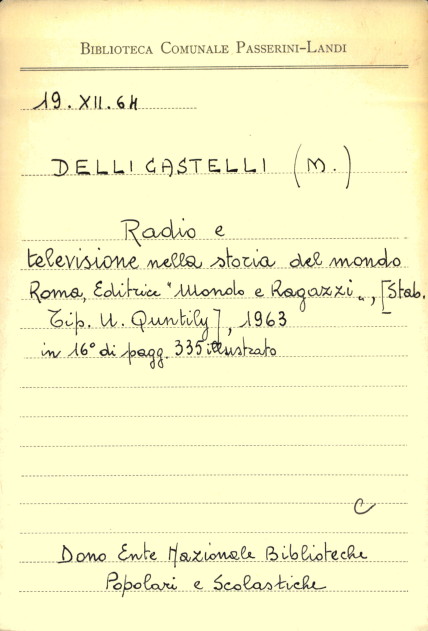 BIBLIOTECA COMUNALE PASSERINI-LANDI
19. XII. 64
DELLI CASTELLI (M.)
Radio e
televisione nella storia del mondo
Roma, Editrice "Mondo e Ragazzi", [Stab.
Tip. U. Quntily], 1963
in 16° di pagg. 335 illustrato
C
Dono Ente Nazionale Biblioteche
Popolari e Scolastiche